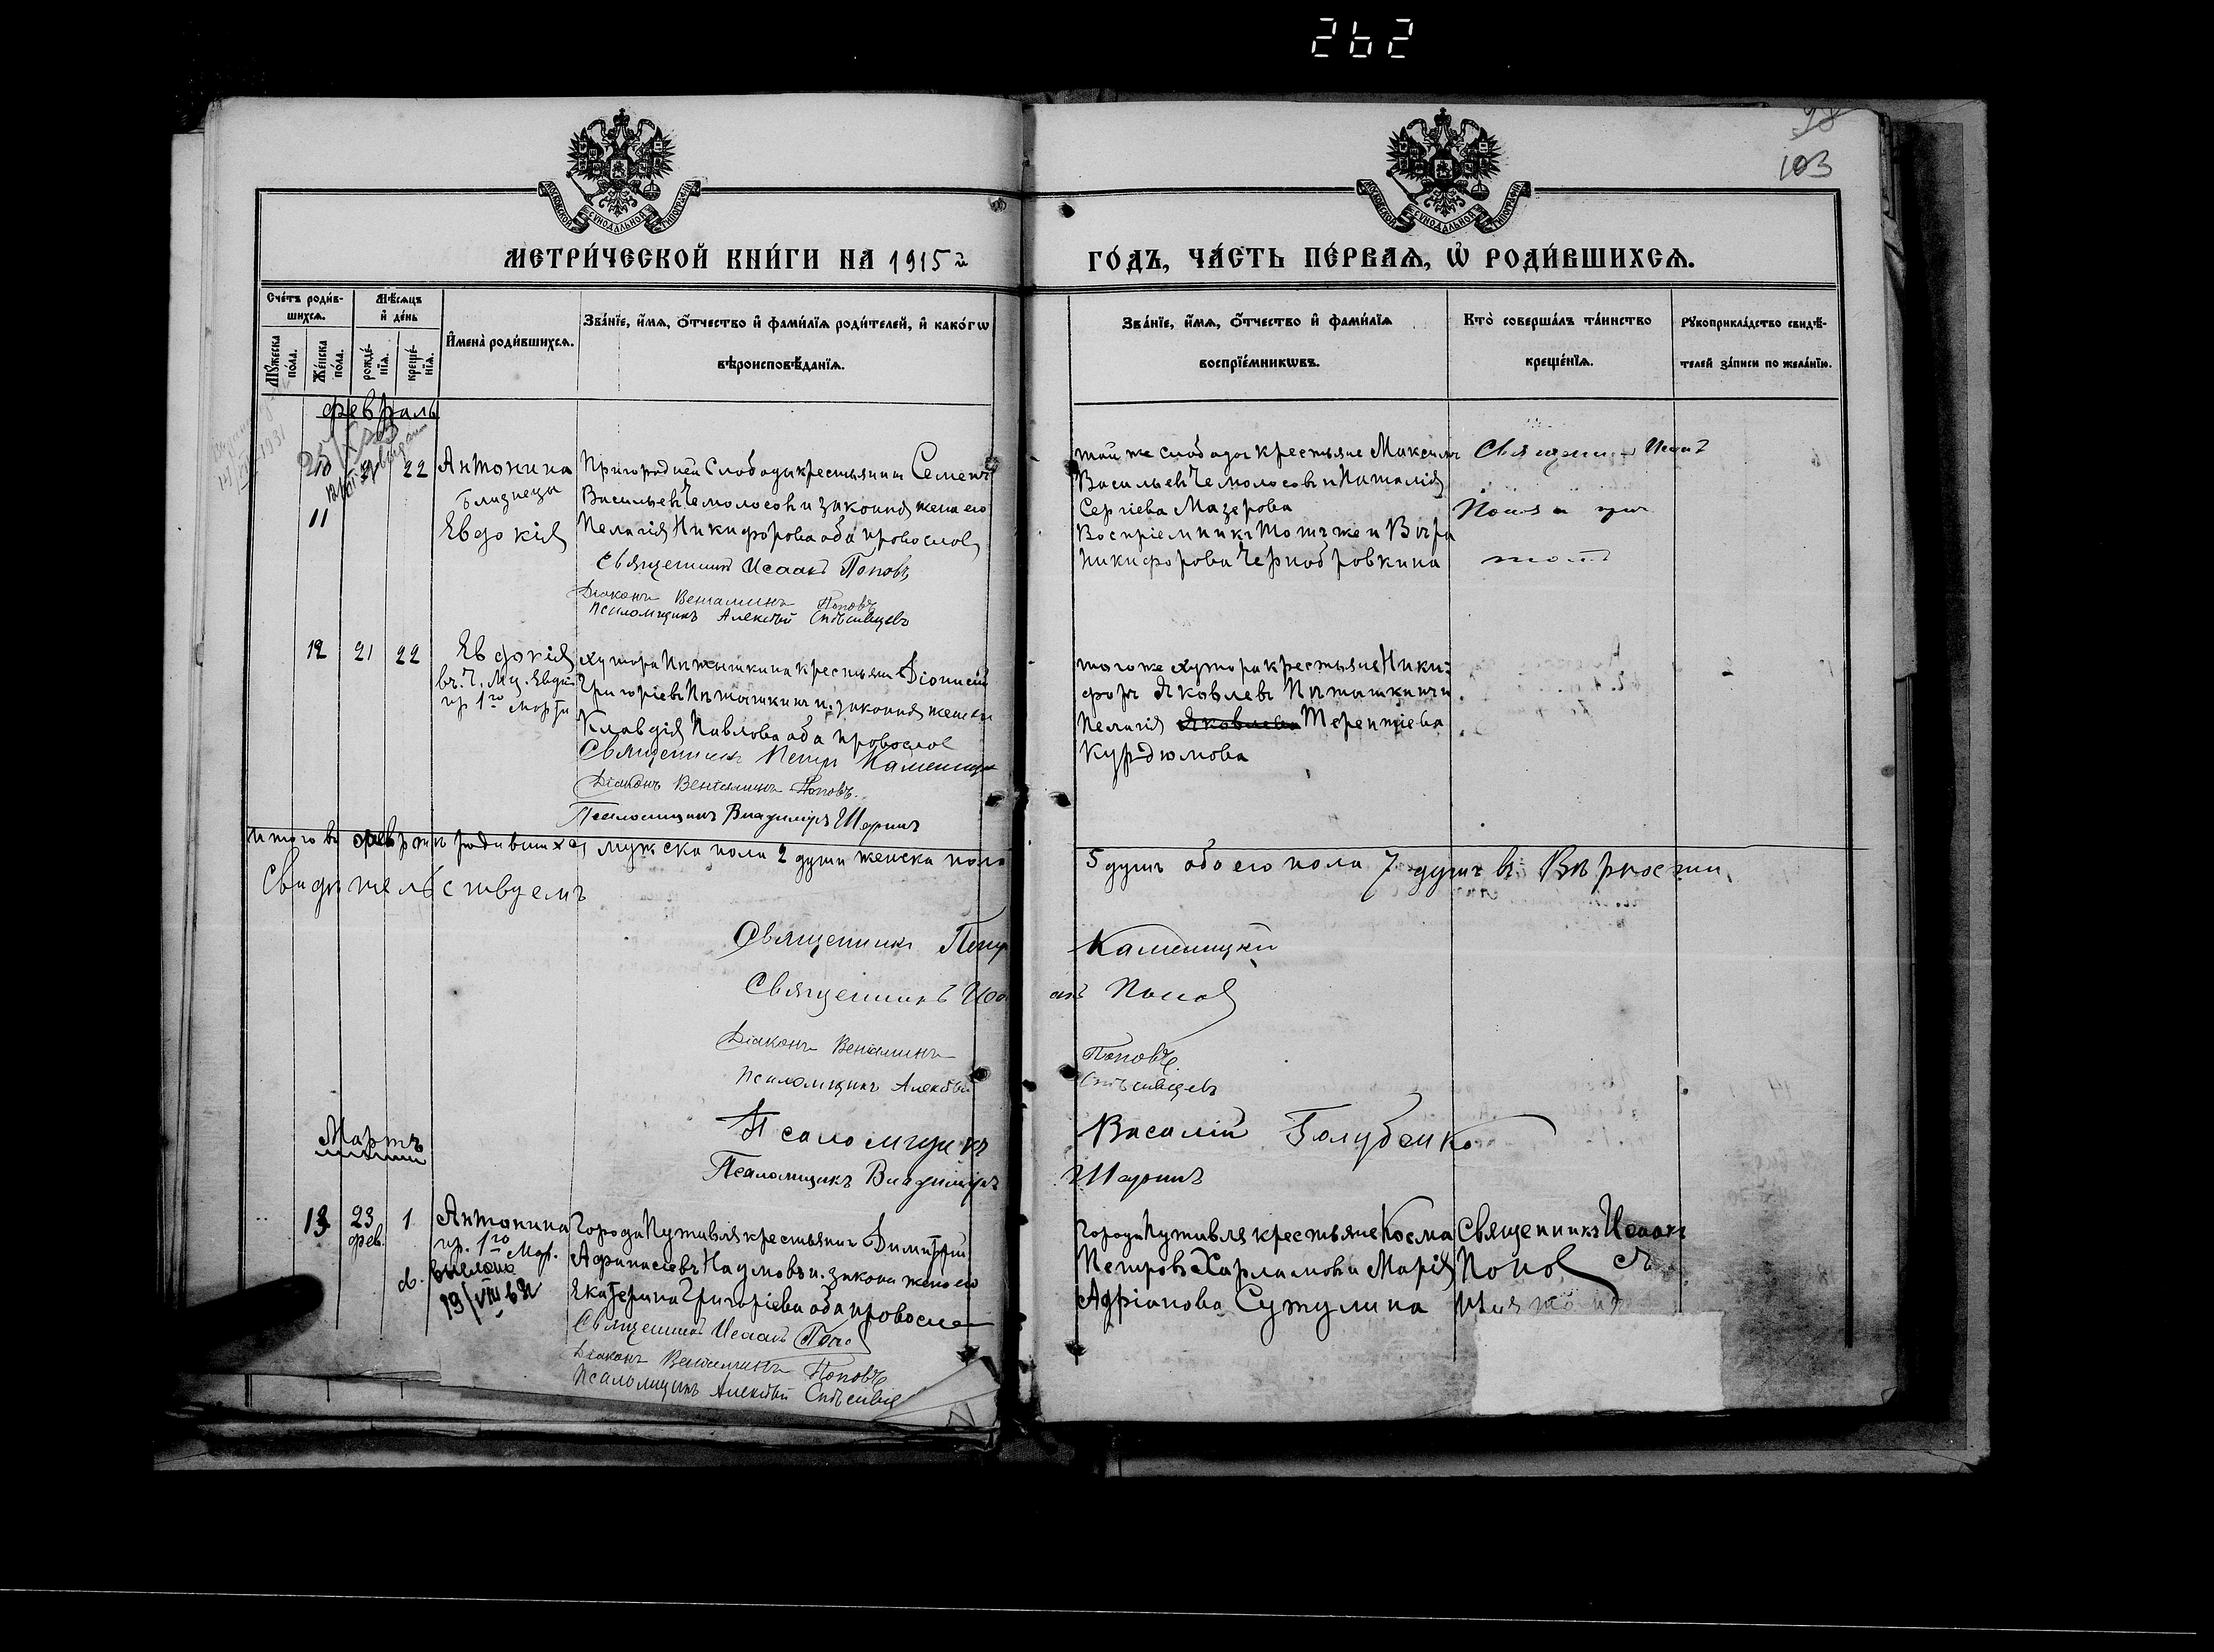 262
98
103
МЕТРИ́ЧЕСКОЙ КНИ́ГИ НА 1915й
ГО́ДЪ, ЧА́СТЬ ПЕ́РВАѦ, Ѿ РОДИ́ВШИХСѦ.
Сче́тъ роди́в-
шихсѧ.
Мѣ́сѧцъ
и҆ де́нь
Мꙋ́жеска
по́ла.
Же́нска
по́ла.
рожде́-
нїѧ.
креще́-
нїѧ.
И҆мена̀ роди́вшихсѧ.
Зва́нїе, и҆́мѧ, ѻ҆́тчество и҆ фами́лїѧ роди́телей, и҆ како́гѡ
вѣроисповѣ́данїѧ.
Зва́нїе, и҆́мѧ, ѻ҆́тчество и҆ фами́лїѧ
воспрїе́мникѡвъ.
Кто̀ соверша́лъ та́инство
креще́нїѧ.
Рꙋкоприкла́дство свидѣ́-
телей за́писи по жела́нїю.
февраль
10
22
Антонина
близнецы
11
Евдокія
Пригородней Слободы крестьянинъ Семенъ
Васильевъ Чемолосовъ и законная жена его
Пелагія Никифорова оба православ
Священникъ Исаакъ Поповъ
Діаконъ Веніаминъ Поповъ
Псаломщикъ Алексѣй Спѣсивцевъ
той же слободы крестьяне Максимъ
Васильевъ Чемолосовъ и Наталія
Сергіева Мазерова
Воспріемники тотъ же и Вѣра
Никифорова Чернобровкина
Священникъ Исаакъ
12
21
22
Евдокія
вч. П. Мц. Евдкі
пр 1го марта
хутора Пятышкина крестьян Діонисій
Григоріевъ Пятышкинъ и законная жена его
Клавдія Павлова оба православ
Священникъ Петръ Каменицкій
Діаконъ Веніаминъ Поповъ.
Псаломщикъ Владиміръ Шаринъ
того же хутора крестьяне Ники-
форъ Яковлевъ Пятышкинъ и
Пелагія Яковлева Терентіева
Курдюмова
Итого въ февралѣ родившихся мужска пола 2 души женска пола
5 душъ обоего пола 7 душъ въ Вѣрности
Свидѣтельствуемъ
Священникъ Петръ Каменицкій
Священникъ Исаакъ Поповъ
Діаконъ Веніаминъ Поповъ
Псаломщикъ Алексѣй Спѣсивцевъ
Псаломщикъ Василій Голубенко
Псаломщикъ Владиміръ Шаринъ
Мартъ
13
23
фев.
1
Антонина
пр. 1го Мар.
19/VIII 62
Города Путивля крестьянинъ Димитрій
Афанасіевъ Наумовъ и законн жена его
Екатерина Григоріева оба православ
Священникъ Исаакъ Поповъ
Діаконъ Веніаминъ Поповъ
Псаломщикъ Алексѣй Спѣсивцев
города Путивля крестьяне Косма
Петровъ Харламовъ и Марія
Адріанова Сутулина
Священникъ Исаакъ
Поповъ съ